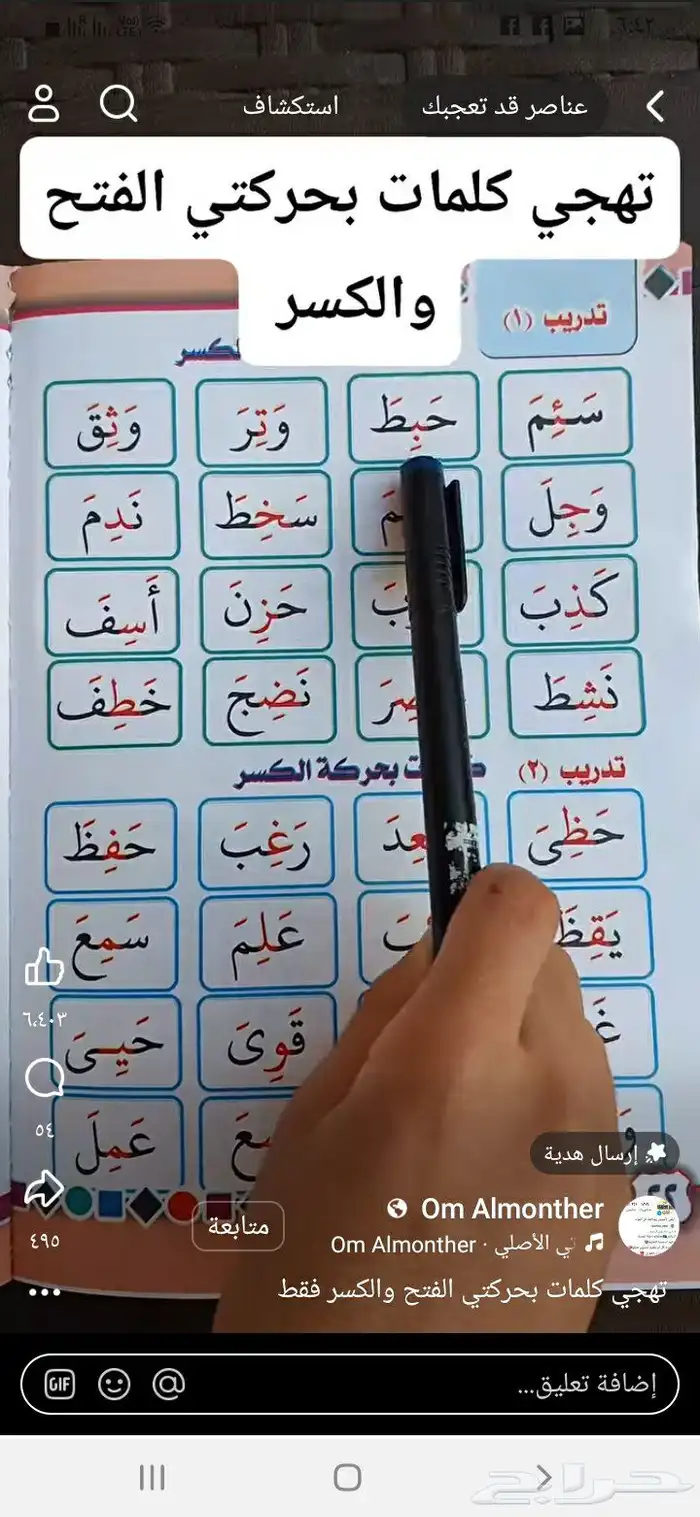 ٦:٤٢
عناصر قد تعجبك
استكشاف
تهجي كلمات بحركتي الفتح
والكسر
تدريب (١)
الكسر
سَئِمَ حَبِطَ وَتِرَ وَثِقَ
وَجِلَ سَخِطَ نَدِمَ
كَذِبَ حَزِنَ أَسِفَ
نَشِطَ نَضِجَ خَطِفَ
تدريب (٢) بحركة الكسر
حَظِىَ رَغِبَ حَفِظَ
يَقِظَ عَلِمَ سَمِعَ
قَوِىَ حَيِىَ
عَمِلَ
٦،٤٠٣
٥٤
٤٩٥
إرسال هدية
Om Almonther
متابعة
الأصلي · Om Almonther
تهجي كلمات بحركتي الفتح والكسر فقط
إضافة تعليق...
GIF
حراج